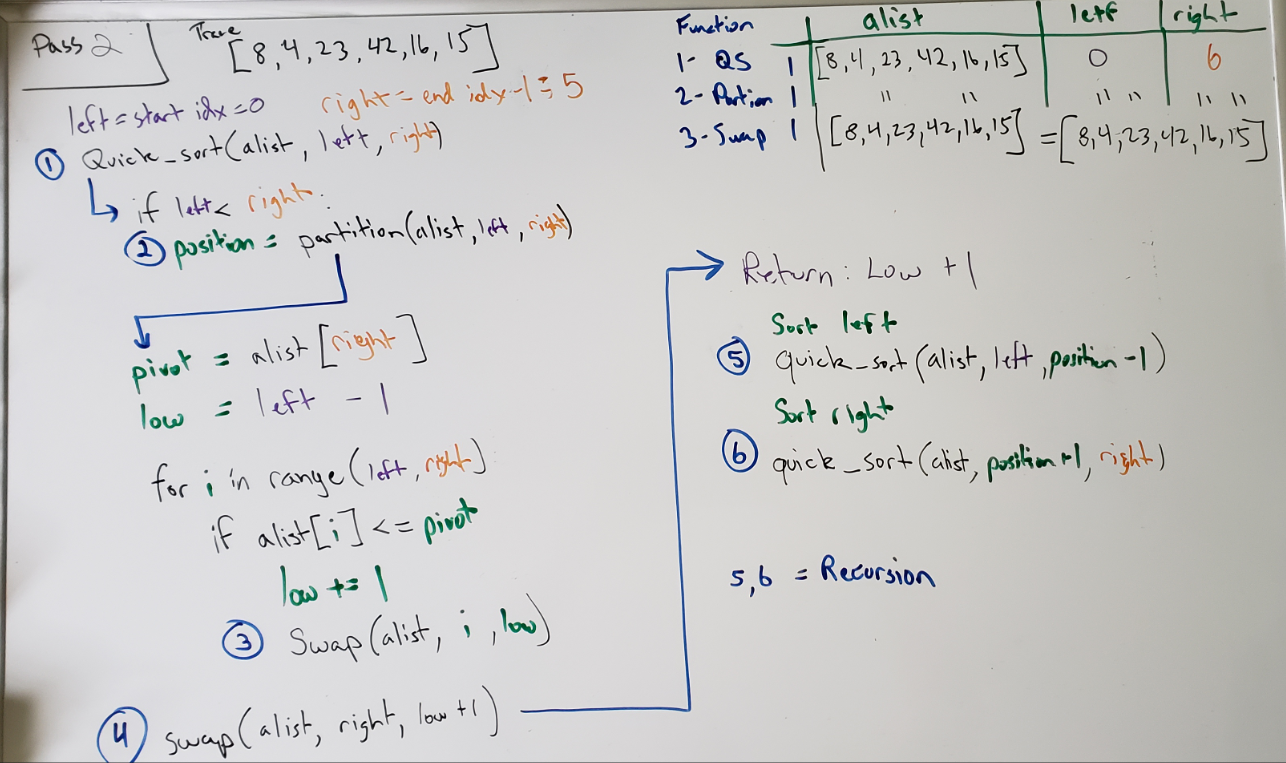 Pass 2
Trace
[8,4,23,42,16,15]
left = start idx = 0
right = end idx -1 = 5
① Quick_sort(alist, left, right)
if left < right:
② position = partition(alist, left, right)
pivot = alist[right]
low = left - 1
for i in range(left, right)
if alist[i] <= pivot
low += 1
③ Swap(alist, i, low)
④ swap(alist, right, low +1)
Function alist left right
1- QS 1 [8,4,23,42,16,15] 0 6
2- Partion 1 " " " " " "
3- Swap 1 [8,4,23,42,16,15] = [8,4,23,42,16,15]
Return: Low +1
Sort left
⑤ quick_sort(alist, left, position -1)
Sort right
⑥ quick_sort(alist, position +1, right)
5,6 = Recursion